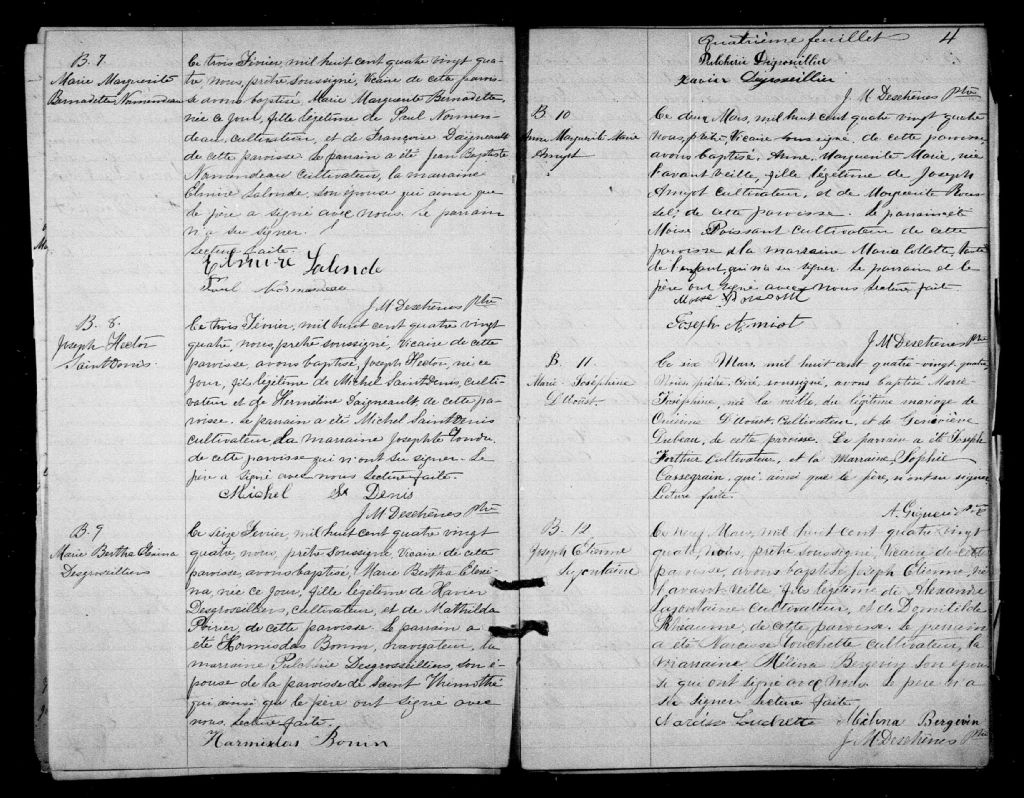 B. 7
Marie Marguerite
Bernadette Normendeau
Ce trois Février, mil huit cent quatre vingt qua-
tre nous, prêtre soussigné, Vicaire de cette parois-
se avons baptisé, Marie Marguerite Bernadette,
née ce jour, fille légitime de Paul Normen-
deau, cultivateur, et de Françoise Daigneault
de cette paroisse. Le parrain a été Jean Baptiste
Normendeau cultivateur, la marraine
Elmire Lalonde, son épouse qui ainsi que
le père a signé avec nous. Le parrain
n'a su signer.
Lecture faite.
Elmire Lalonde
Paul Normandeau
J. M Deschênes Ptre
B. 8.
Joseph Hector
Saint Denis
Ce trois Février, mil huit cent quatre vingt
quatre, nous, prêtre soussigné, Vicaire de cette
paroisse, avons baptisé, Joseph Hector, né ce
jour, fils légitime de Michel Saint Denis, culti-
vateur et de Hermeline Daigneault de cette pa-
roisse. Le parrain a été Michel Saint Denis
cultivateur & la marraine Josephte
de cette paroisse qui n'ont su signer. Le
père a signé avec nous Lecture faite.
Michel St Denis
J. M Deschênes Ptre
B. 9
Marie Bertha
Desgroseilliers
Ce seize Février, mil huit cent quatre vingt
quatre, nous, prêtre soussigné, Vicaire de cette
paroisse, avons baptisé, Marie Bertha
née ce jour, fille légitime de Xavier
Desgroseilliers, cultivateur, et de Mathilda
Poirier, de cette paroisse. Le parrain a
été Hormisdas Bonin, navigateur, la
marraine Pulchérie Desgrosseilliers, son é-
pouse de la paroisse de Saint Thimothé
qui ainsi que le père ont signé avec
nous. Lecture faite.
Harmisdas Bonin
Quatrième feuillet 4
Pulcherie
Xavier
J. M Deschênes Ptre
B. 10
Anne Marguerite Marie
Amyot
Ce deux Mars, mil huit cent quatre vingt quatre
nous, prêtre, Vicaire soussigné, de cette paroisse,
avons baptisé, Anne, Marguerite Marie, née
l'avant veille, fille légitime de Joseph
Amyot cultivateur, et de Marguerite Rous-
sel; de cette paroisse. Le parrain a été
Moise Poissant cultivateur de cette
paroisse & la marraine Marie Collette, tante
de l'enfant, qui n'a su signer. Le parrain et le
père ont signé avec nous Lecture faite.
Moise
Joseph Amiot
J. M Deschênes Ptre
B. 11
Marie Joséphine
D'Aoust.
Ce six Mars, mil huit cent quatre-vingt, quatre
Nous prêtre, curé, soussigné, avons baptisé Marie
Joséphine, née la veille, du légitime mariage de
D'Aoust, cultivateur, et de Geneviève
Dubeau, de cette paroisse. Le parrain a été Joseph
Forthier cultivateur, et la Marraine, Sophie
Cassegrain, qui, ainsi que le père, n'ont su signer
Lecture faite.
B. 12
Joseph Etienne
Lafontaine
Ce neuf Mars, mil huit cent quatre vingt
quatre, nous, prêtre, soussigné, Vicaire de cette
paroisse, avons baptisé Joseph Etienne, né
l'avant veille, fils légitime de Alexandre
Lafontaine cultivateur, et de Domitilde
Rhéaume, de cette paroisse. Le parrain
a été Narcisse Touchette cultivateur, la
marraine Mélina Bergevin son épou-
se qui ont signé avec nous. Le père n'a
su signer. Lecture faite.
Narcisse Touchette Mélina Bergevin
J. M Deschênes Ptre